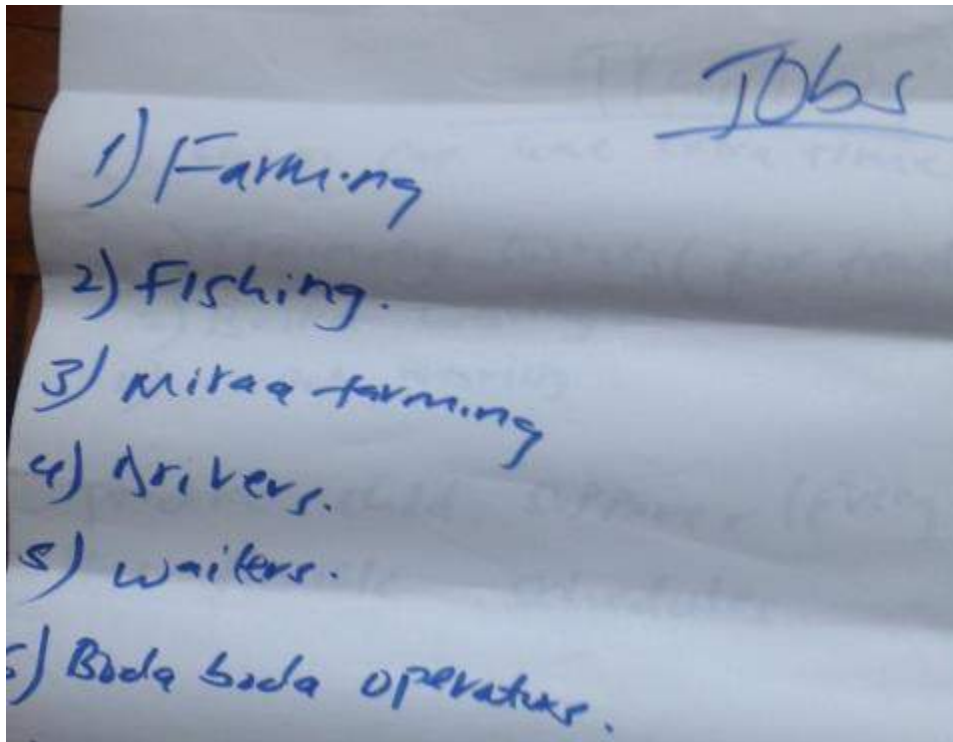 Jobs
1) Farming
2) Fishing.
3) Miraa farming
4) Drivers.
5) waiters.
6) Boda boda operators.